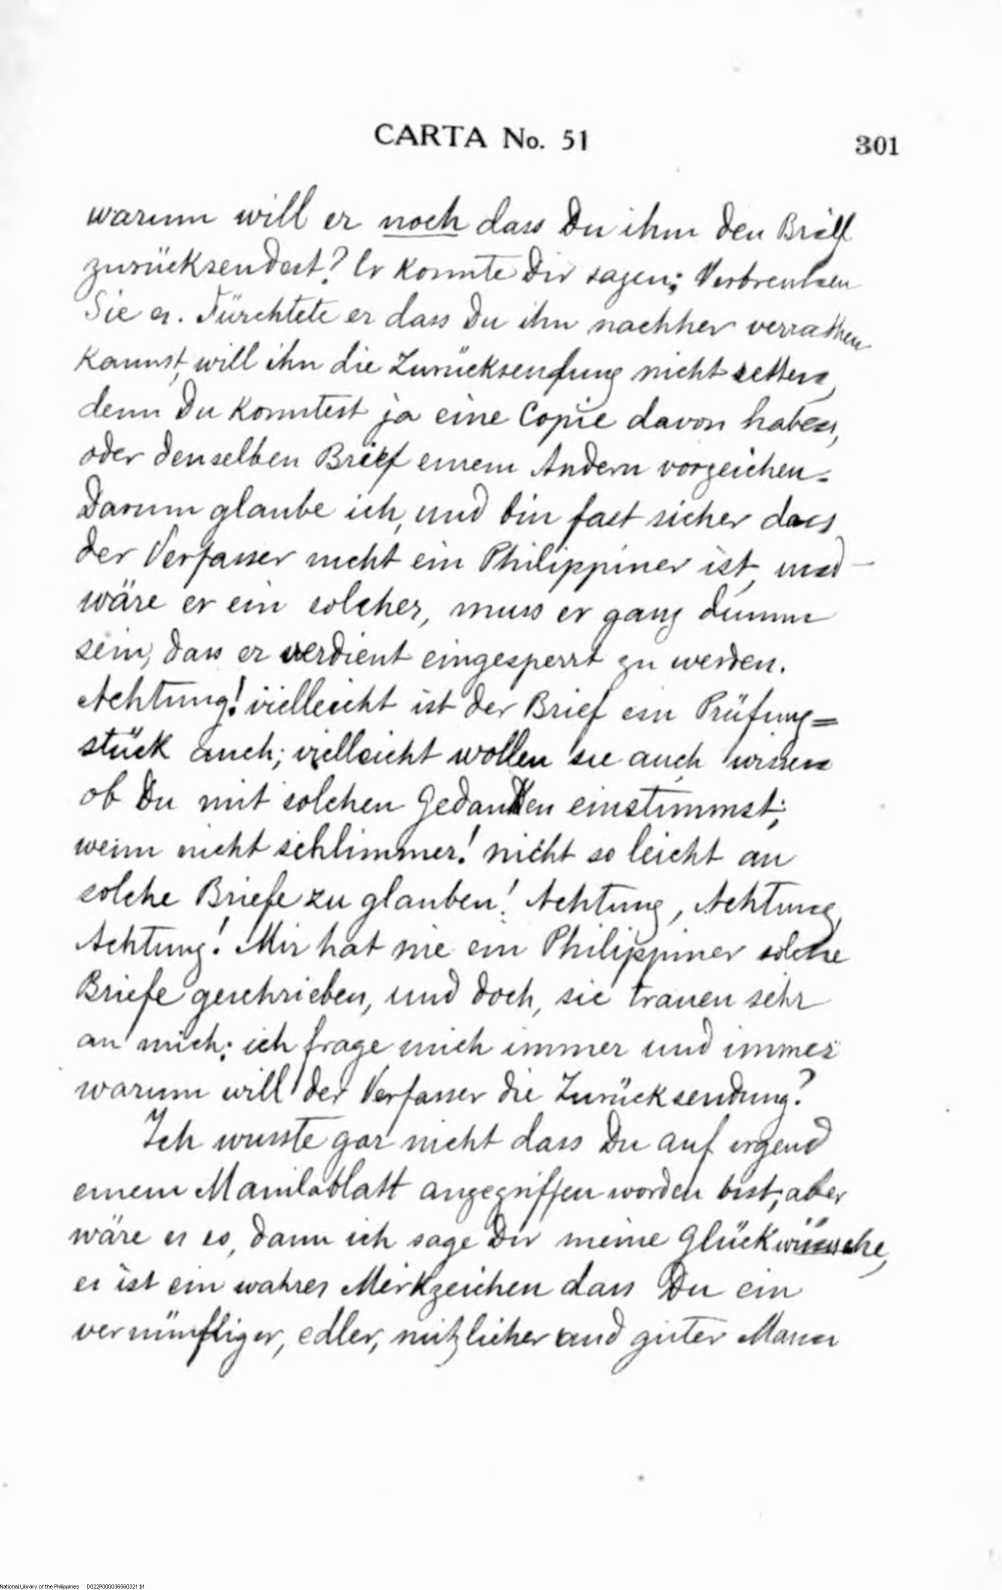 CARTA No. 51
301
warum will er noch dass Du ihm den Brief
zurücksendest? Er konnte Dir sagen: Verbrennen
Sie es. Fürchtete er dass Du ihn nachher verrathen
kannst, will ihn die Zurücksendung nicht retten,
denn Du konntest ja eine Copie davon haben,
oder denselben Brief einem Andern vorzeichen.
Darum glaube ich, und bin fast sicher dass
der Verfasser nicht ein Philippiner ist, und
wäre er ein solcher, muss er ganz dumm
sein, dass er verdient eingesperrt zu werden.
Achtung! vielleicht ist der Brief ein Prüfung=
stück auch; vielleicht wollen sie auch wissen
ob Du mit solchen Gedanken einstimmst;
wenn nicht schlimmer! nicht so leicht an
solche Briefe zu glauben! Achtung, Achtung,
Achtung! Mir hat nie ein Philippiner solche
Briefe geschrieben, und doch, sie trauen sehr
an mich; ich frage mich immer und immer
warum will der Verfasser die Zurücksendung?
Ich wusste gar nicht dass Du auf irgend
einem Manilablatt angegriffen worden bist; aber
wäre es so, dann ich sage Dir meine Glückwünsche,
es ist ein wahres Merkzeichen dass Du ein
vernünftiger, edler, nützlicher und guter Mann
National Library of the Philippines